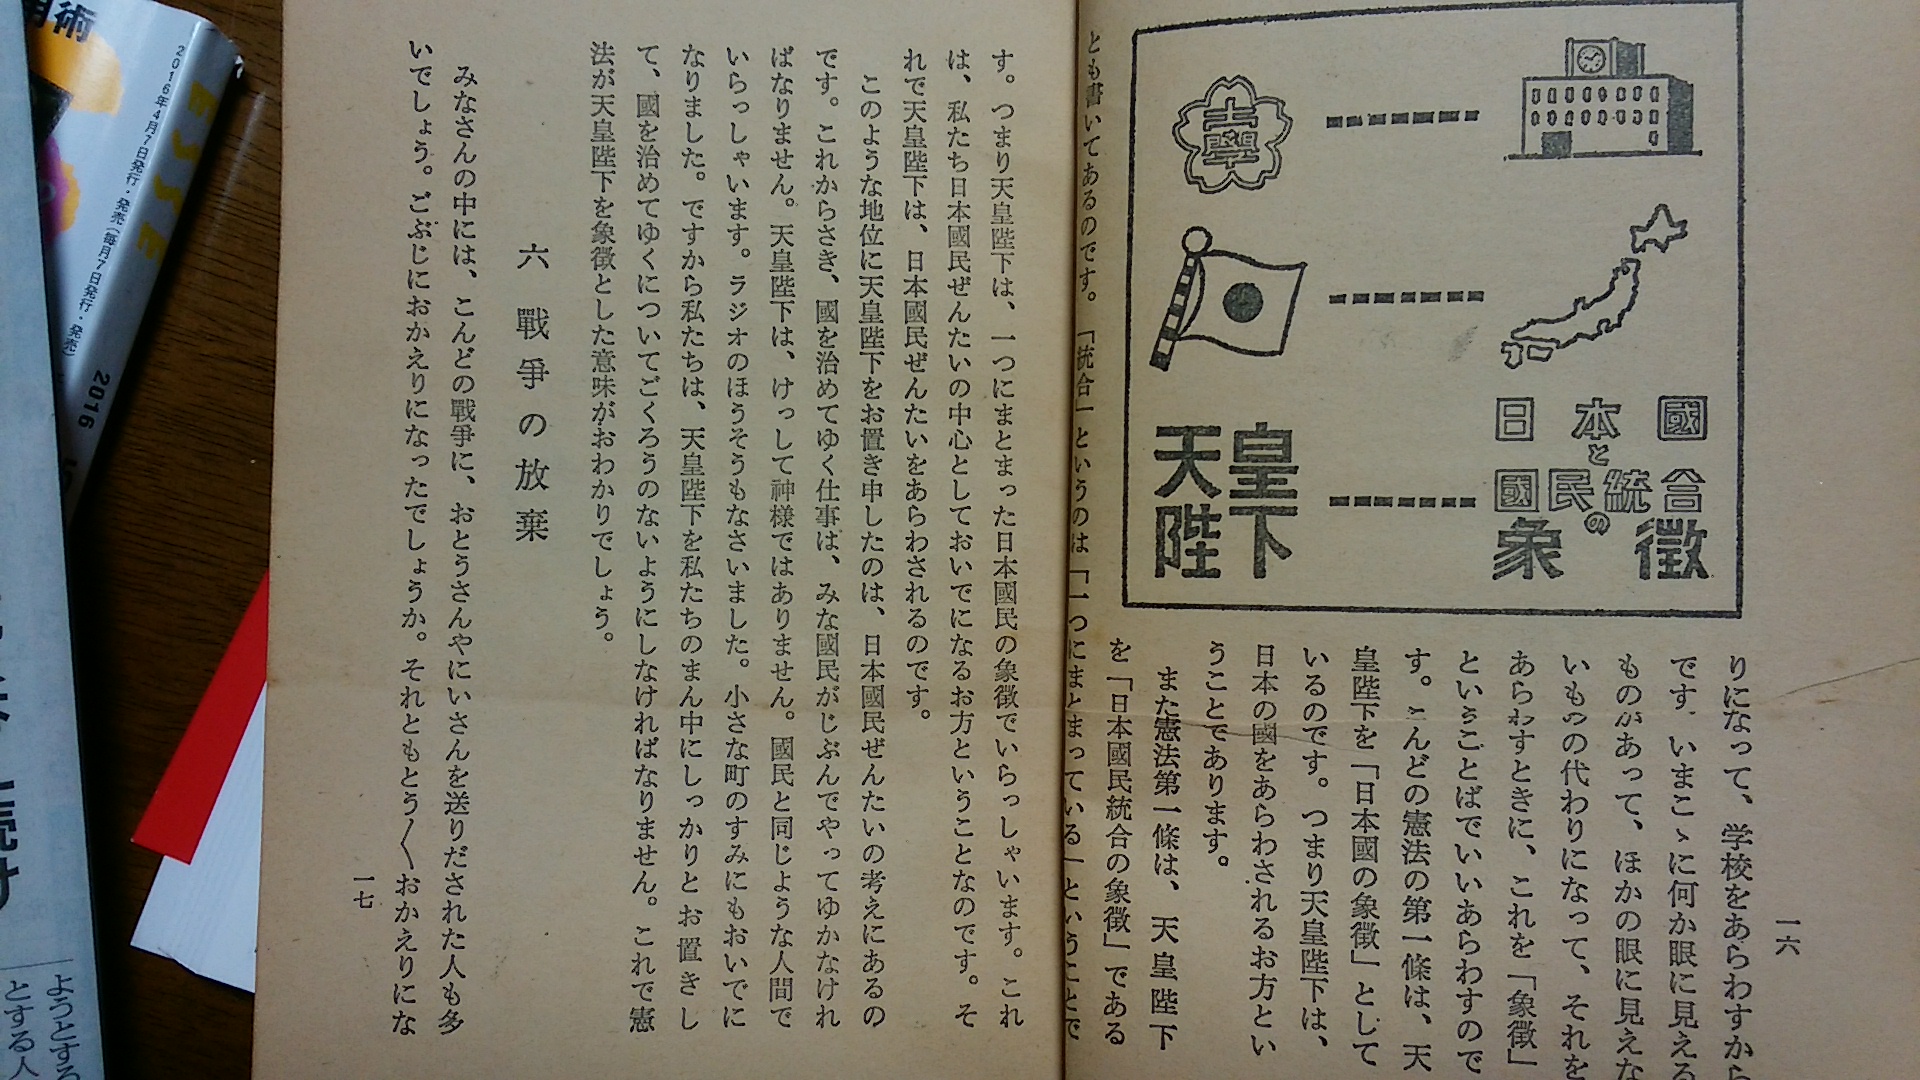 一六
りになって、学校をあらわすから
です。いまこゝに何か眼に見える
ものがあって、ほかの眼に見えな
いものの代わりになって、それを
あらわすときに、これを「象徴」
ということばでいいあらわすので
す。こんどの憲法の第一條は、天
皇陛下を「日本國の象徴」として
いるのです。つまり天皇陛下は、
日本の國をあらわされるお方とい
うことであります。
また憲法第一條は、天皇陛下
を「日本國民統合の象徴」である
とも書いてあるのです。「統合」というのは「一つにまとまっている」ということで
大學
日本國
と
國民統合
の
象徴
天皇
陛下
す。つまり天皇陛下は、一つにまとまった日本國民の象徴でいらっしゃいます。これ
は、私たち日本國民ぜんたいの中心としておいでになるお方ということなのです。そ
れで天皇陛下は、日本國民ぜんたいをあらわされるのです。
このような地位に天皇陛下をお置き申したのは、日本國民ぜんたいの考えにあるの
です。これからさき、國を治めてゆく仕事は、みな國民がじぶんでやってゆかなけれ
ばなりません。天皇陛下は、けっして神様ではありません。國民と同じような人間で
いらっしゃいます。ラジオのほうそうもなさいました。小さな町のすみにもおいでに
なりました。ですから私たちは、天皇陛下を私たちのまん中にしっかりとお置きし
て、國を治めてゆくについてごくろうのないようにしなければなりません。これで憲
法が天皇陛下を象徴とした意味がおわかりでしょう。
六 戰爭の放棄
みなさんの中には、こんどの戰爭に、おとうさんやにいさんを送りだされた人も多
いでしょう。ごぶじにおかえりになったでしょうか。それともとう〱おかえりにな
一七
ESSE
2016年4月7日発行・発売(毎月7日発行・発売)
2016
ようとする
とする人